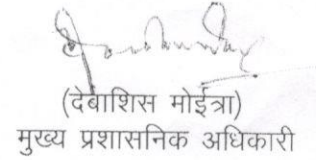 (देबाशिस मोईत्रा)
मुख्य प्रशासनिक अधिकारी